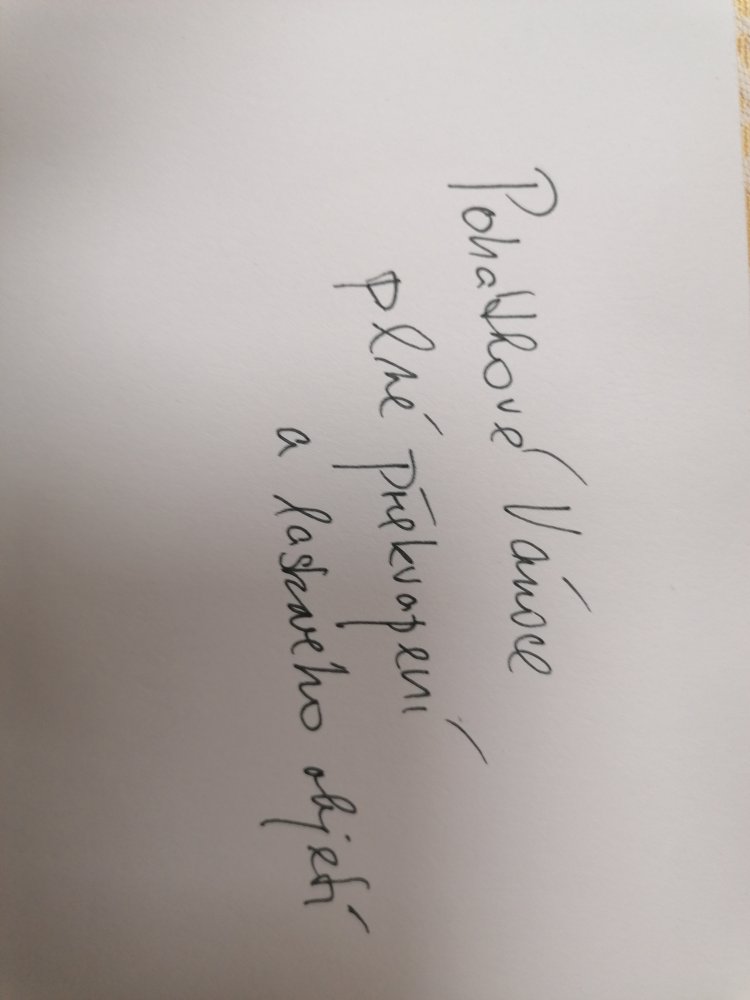 Pohádkové Vánoce
plné překvapení
a laskavého objetí